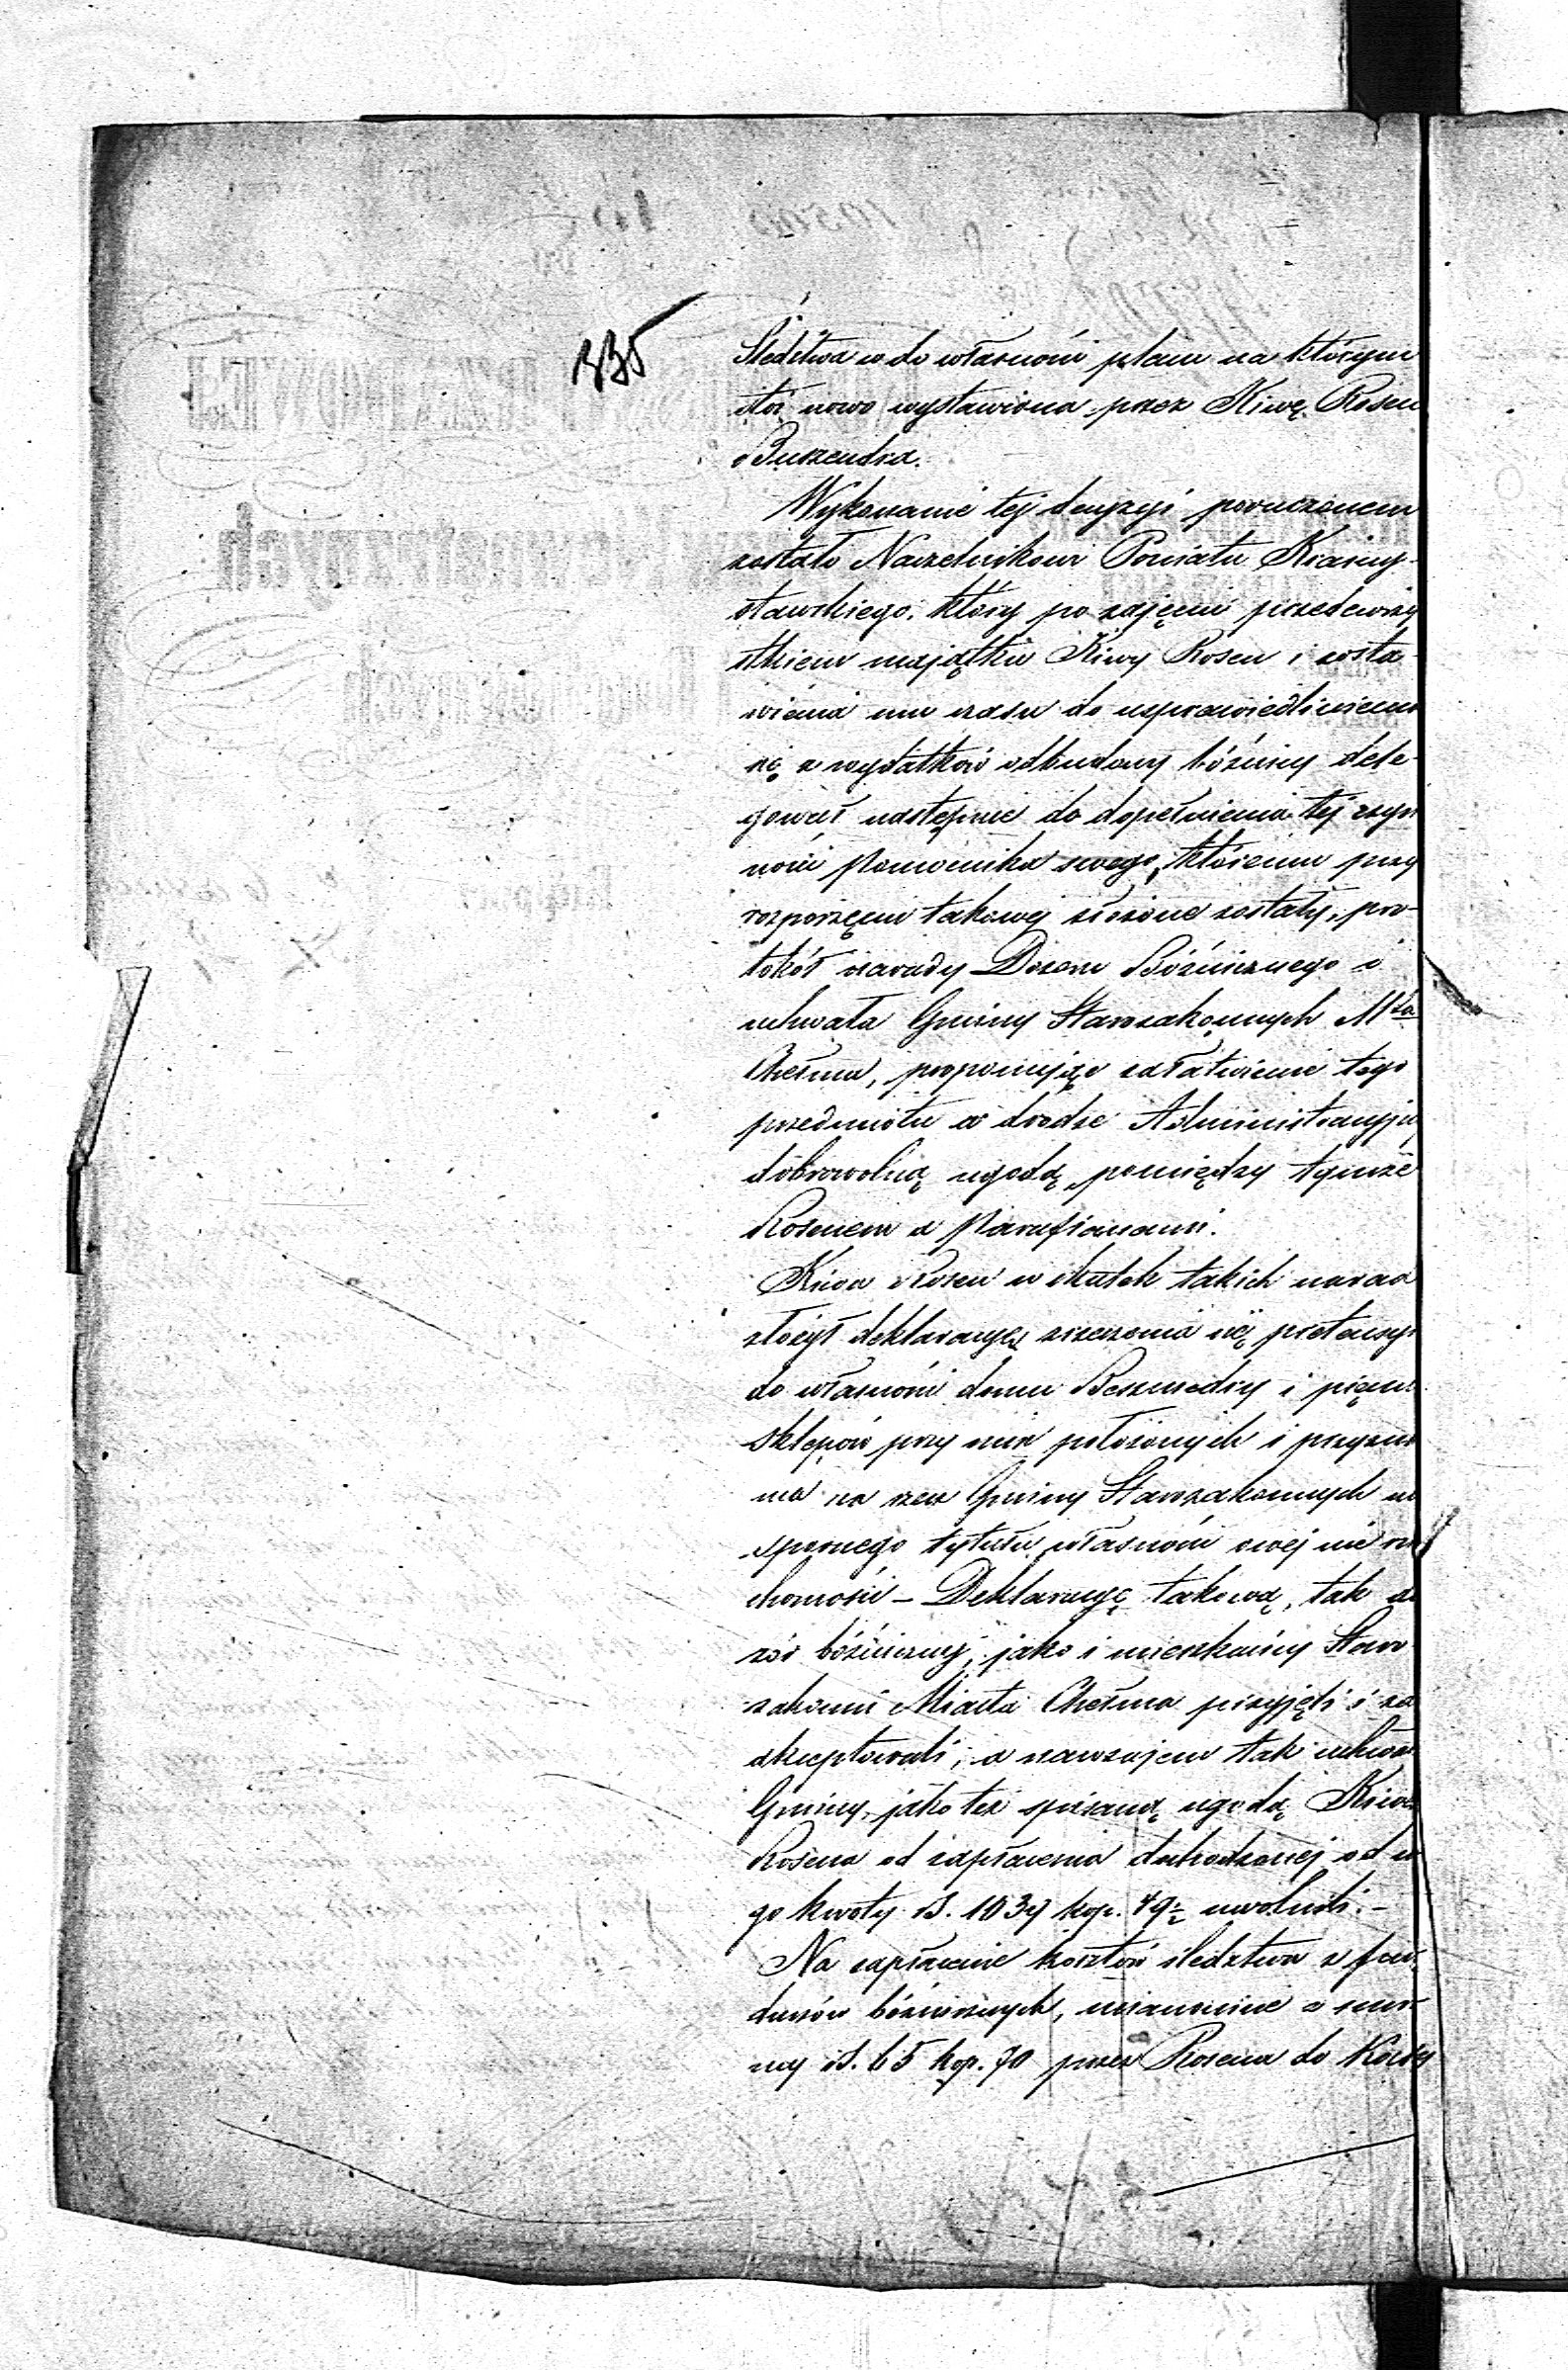 335
Śledztwa w do własności placu na którym
stoi nowo wystawiona przez Kiwę Rosen
Buszendra.
Wykonanie tej decyzyi poruczonem
zostało Naczelnikowi Powiatu Krasny-
stawskiego, który po zajęciu przedewszy
stkiem majątku Kiwy Rosen i zosta-
wienia mu czasu do usprawiedliwienia
się z wydatków odbudowy bóżnicy dele-
gował następnie do dopełnienia tej czyn
ności Pomocnika swego, któremu przy
rozpoczęciu takowej złożone zostały, pro-
tokół narady Dozoru Bóżniczego i
uchwała Gminy Starozakonnych Mta
Chełma, proponując załatwienie tego
przedmiotu w drodze Administracyjnej
dobrowolną ugodą, pomiędzy tymże
Rosenem a Parafianami.
Kiwa Rosen w skutek takich narad
złożył deklaracyę zrzeczenia się pretensyi
do własności domu Beszmedry i pięciu
sklepów przy nim położonych i przyzna
nia na rzecz Gminy Starozakonnych
spornego tytułu własności owej nie ru
chomości – Deklaracyę takową, tak do
zór bóżniczny, jako i mieszkańcy Staro
zakonni Miasta Chełma przyjęli i za
akceptowali, a nawzajem tak uchwałą
Gminy, jako też spisaną ugodą Kiwę
Rosena od zapłacenia dochodzonej od nie
go kwoty rs. 1039 kop. 49½ uwolnili. –
Na zapłacenie kosztów śledztwa z fun-
duszów bóżniczych, mianowicie z sum-
my rs. 65 kop. 70 przez Rosena do Kassy